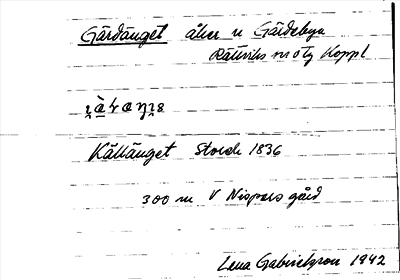 Gärdänget åker n Gärdebyn
Rättviks sn o tg Koppl
Källänget Storsk 1836
300 m V Nispers gård
Lena Gabrielsson 1942